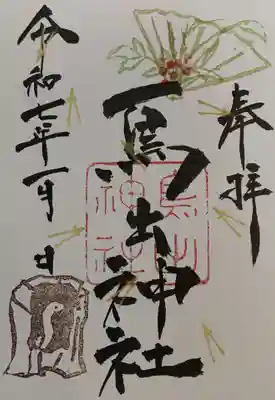 奉拝
鳥出神社
鳥出
神社
令和七年一月 日